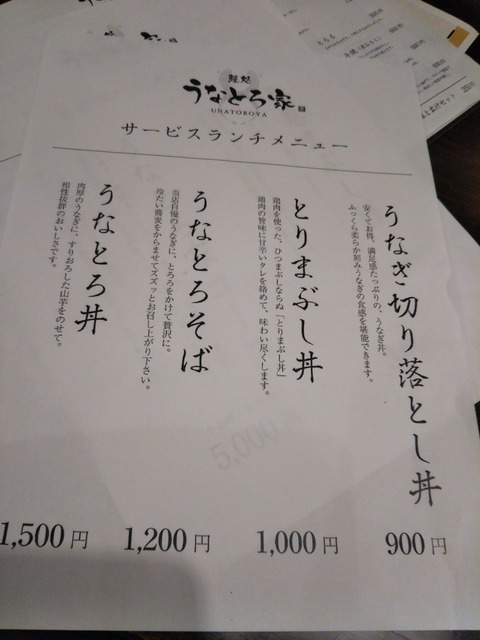 鰻処
うなとろ家
UNATOROYA
サービスランチメニュー
うなぎ切り落とし丼
安くてお得、満足感たっぷりの、うなぎ丼。
ふっくら柔らか刻みうなぎの食感を堪能できます。
900円
とりまぶし丼
鶏肉を使った、ひつまぶしならぬ「とりまぶし丼」
鶏肉の旨味に甘辛いタレを絡めて、味わい尽くします。
1,000円
うなとろそば
当店自慢のうなぎに、とろろをかけて贅沢に。
冷たい蕎麦をからませてズズッとお召し上がり下さい。
1,200円
うなとろ丼
肉厚のうなぎに、すりおろした山芋をのせて。
相性抜群のおいしさです。
1,500円
5,000
とろろ